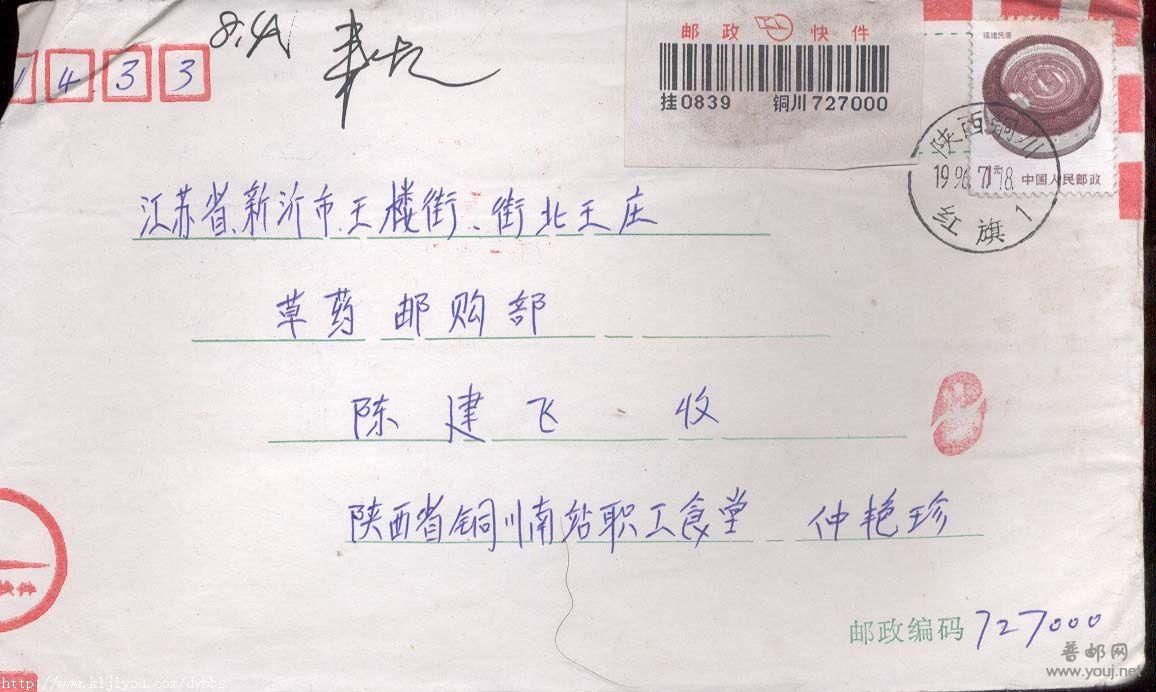 1433
8.4
邮政快件
挂0839 铜川727000
福建民居
1元
中国人民邮政
陕西铜川
1996.7.18
红旗1
江苏省、新沂市、王楼街、街北王庄
草药邮购部
陈建飞 收
陕西省铜川南站职工食堂 仲艳珍
邮政编码 727000
普邮网
www.youj.net
http://www.kljiyou.com/dvbbs